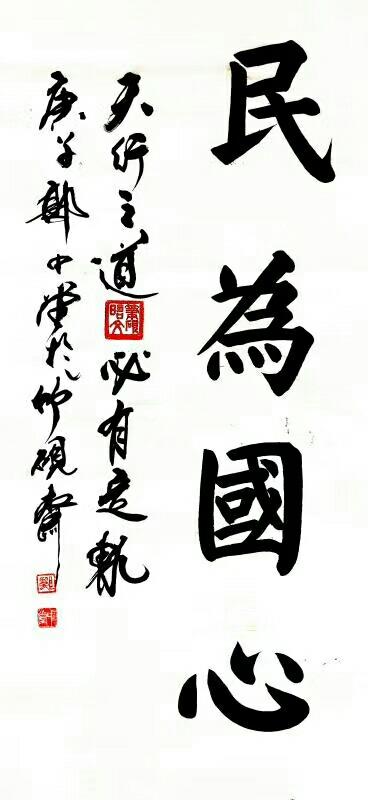 民為國心
天行之道必有定軌
庚子鄭中堂於竹硯齋